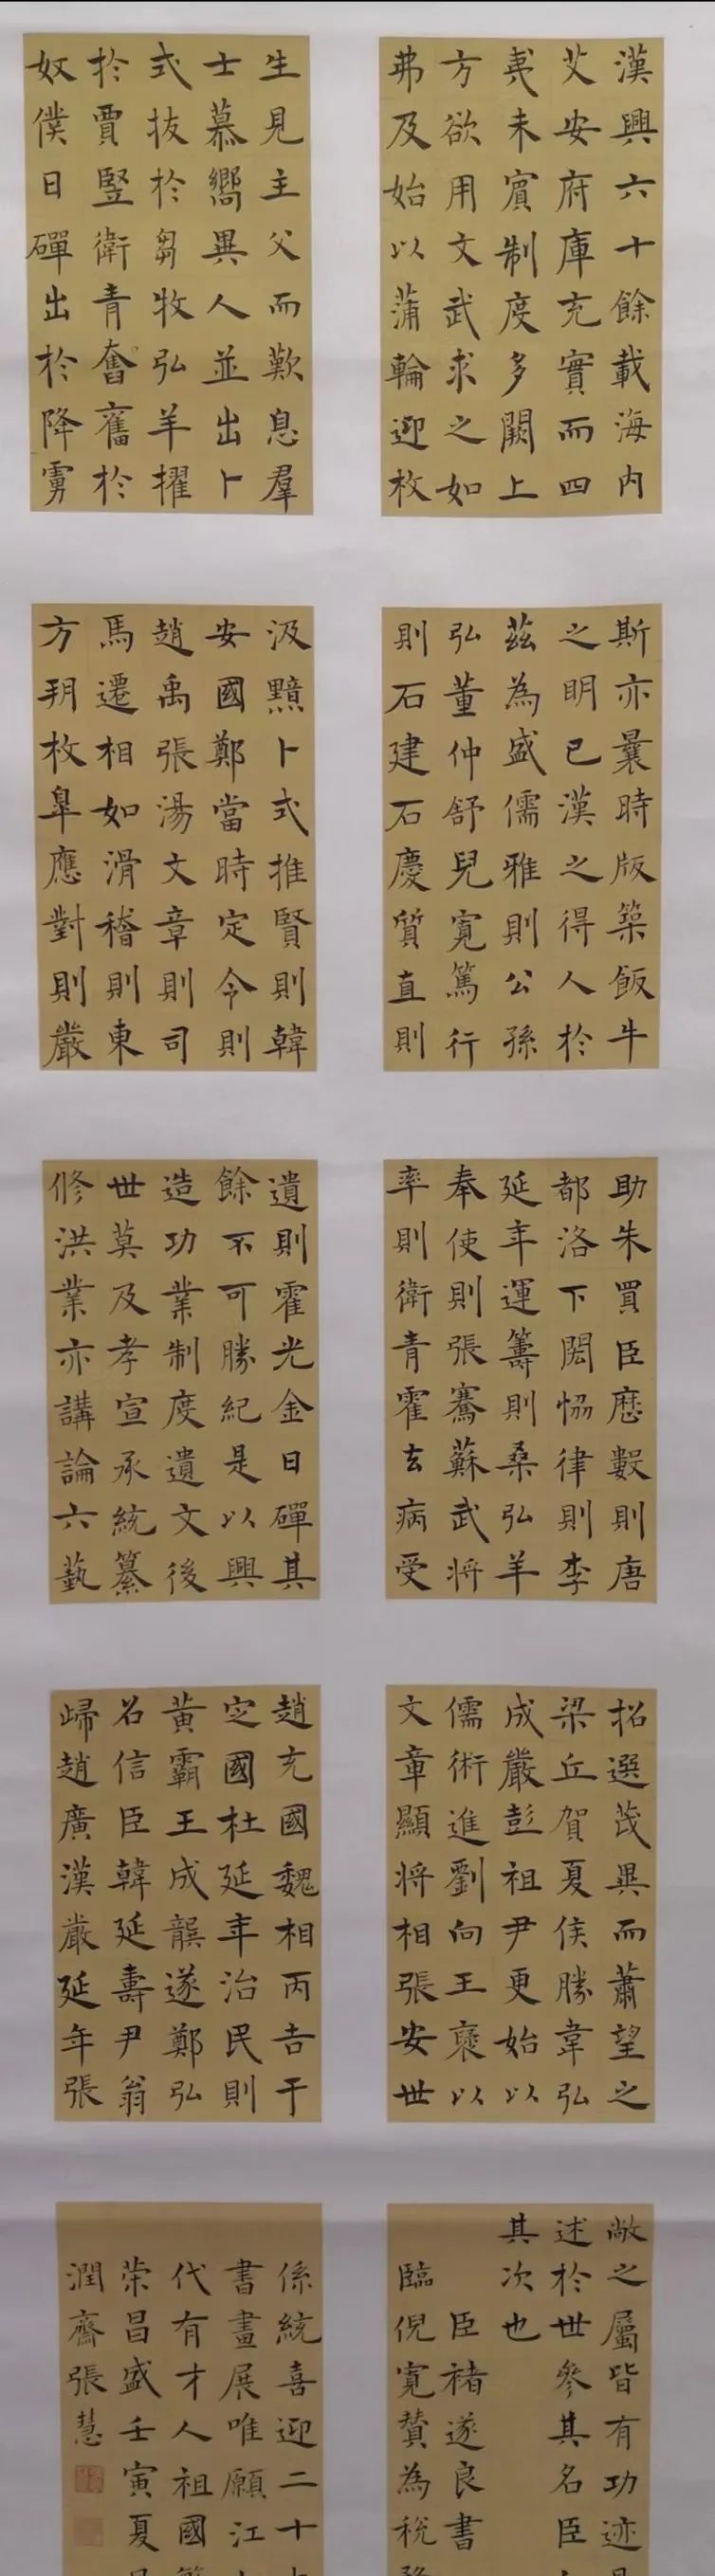 漢興六十餘載海内
艾安府庫充實而四
夷未賓制度多闕上
方欲用文武求之如
弗及始以蒲輪迎枚
生見主父而歎息羣
士慕嚮異人並出卜
式拔於芻牧弘羊擢
於賈豎衛青奮奮於
奴僕日磾出於降虜
斯亦曩時版築飯牛
之明已漢之得人於
茲為盛儒雅則公孫
弘董仲舒兒寬篤行
則石建石慶質直則
汲黯卜式推賢則韓
安國鄭當時定令則
趙禹張湯文章則司
馬遷相如滑稽則東
方朔枚皐應對則嚴
助朱買臣歷數則唐
都洛下閎恊律則李
延年運籌則桑弘羊
奉使則張騫蘇武將
率則衛青霍去病受
遺則霍光金日磾其
餘不可勝紀是以興
造功業制度遺文後
世莫及孝宣承統纂
修洪業亦講論六藝
招選茂異而蕭望之
梁丘賀夏侯勝韋弘
成嚴彭祖尹更始以
儒術進劉向王褒以
文章顯將相張安世
趙充國魏相丙吉于
定國杜延年治民則
黃霸王成龔遂鄭弘
召信臣韓延壽尹翁
歸趙廣漢嚴延年張
敞之屬皆有功迹
述於世參其名臣
其次也
臣褚遂良書
臨倪寬贊為稅
係統喜迎二十
書畫展唯願江
代有才人祖國
荣昌盛壬寅夏
潤齋張慧